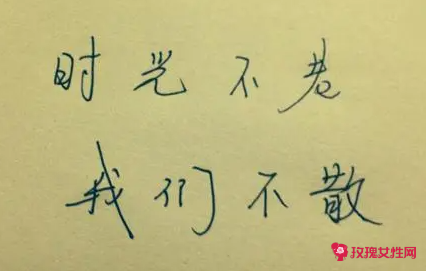 时光不老
我们不散
玫瑰女性网